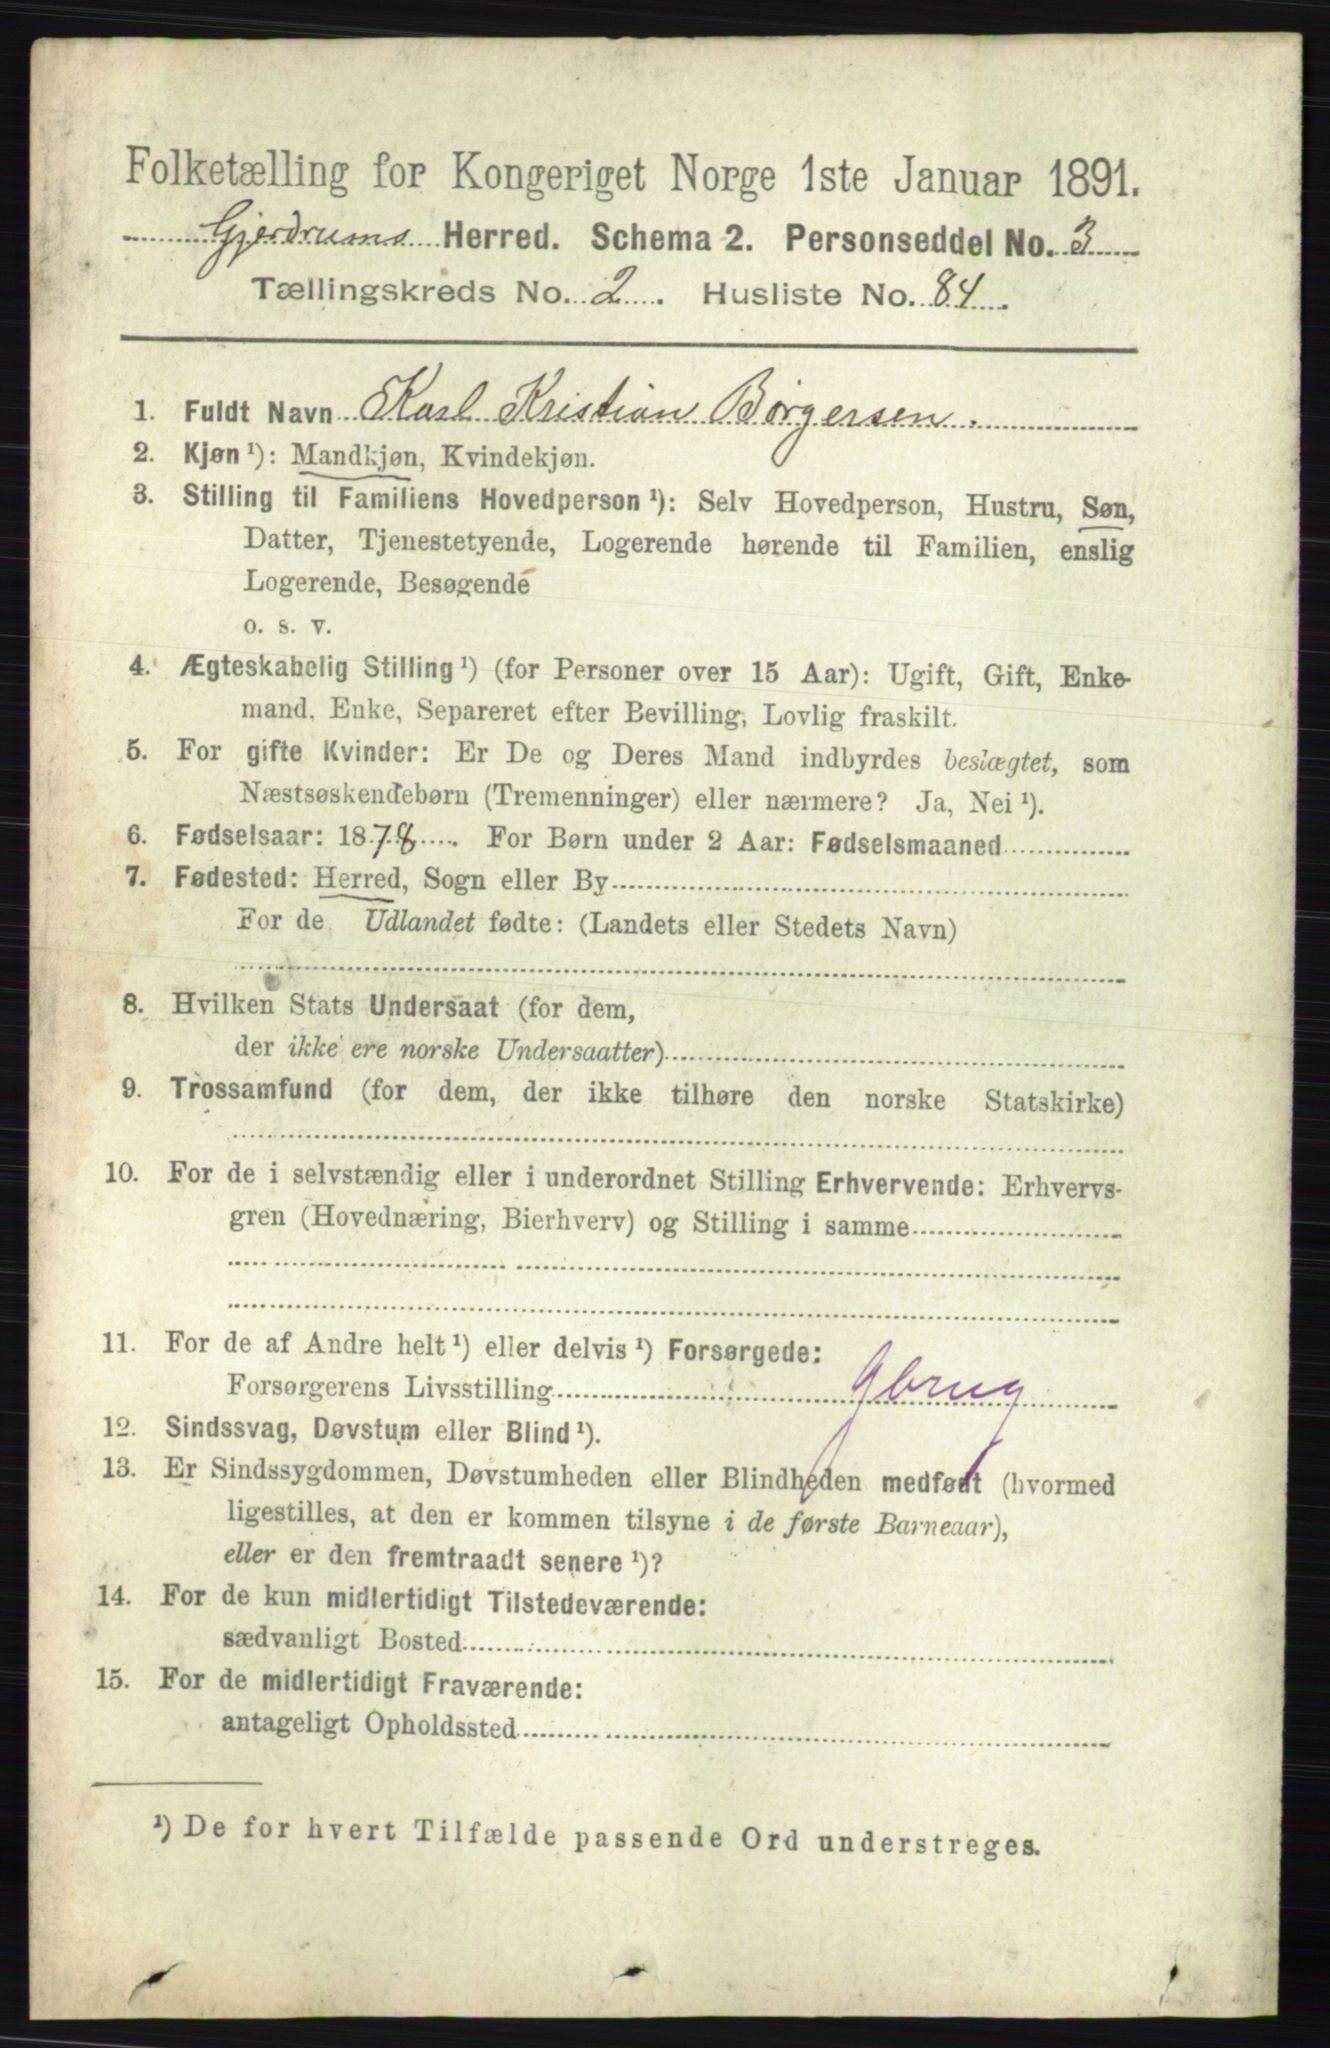 Folketælling for Kongeriget Norge 1ste Januar 1891.
Gjerdrums Herred. Schema 2. Personseddel No. 3
Tællingskreds No. 2. Husliste No. 84.
1. Fuldt Navn Karl Kristian Børgersen.
2. Kjøn ¹): Mandkjøn, Kvindekjøn.
3. Stilling til Familiens Hovedperson ¹): Selv Hovedperson, Hustru, Søn,
Datter, Tjenestetyende, Logerende hørende til Familien, enslig
Logerende, Besøgende
o. s. v.
4. Ægteskabelig Stilling ¹) (for Personer over 15 Aar): Ugift, Gift, Enke-
mand, Enke, Separeret efter Bevilling, Lovlig fraskilt.
5. For gifte Kvinder: Er De og Deres Mand indbyrdes beslægtet, som
Næstsøskendebørn (Tremenninger) eller nærmere? Ja, Nei ¹).
6. Fødselsaar: 1878. For Børn under 2 Aar: Fødselsmaaned
7. Fødested: Herred, Sogn eller By
For de Udlandet fødte: (Landets eller Stedets Navn)
8. Hvilken Stats Undersaat (for dem,
der ikke ere norske Undersaatter)
9. Trossamfund (for dem, der ikke tilhøre den norske Statskirke)
10. For de i selvstændig eller i underordnet Stilling Erhvervende: Erhvervs-
gren (Hovednæring, Bierhverv) og Stilling i samme
11. For de af Andre helt ¹) eller delvis ¹) Forsørgede:
Forsørgerens Livsstilling Gbrug
12. Sindssvag, Døvstum eller Blind ¹).
13. Er Sindssygdommen, Døvstumheden eller Blindheden medfødt (hvormed
ligestilles, at den er kommen tilsyne i de første Barneaar),
eller er den fremtraadt senere ¹)?
14. For de kun midlertidigt Tilstedeværende:
sædvanligt Bosted
15. For de midlertidigt Fraværende:
antageligt Opholdssted
¹) De for hvert Tilfælde passende Ord understreges.